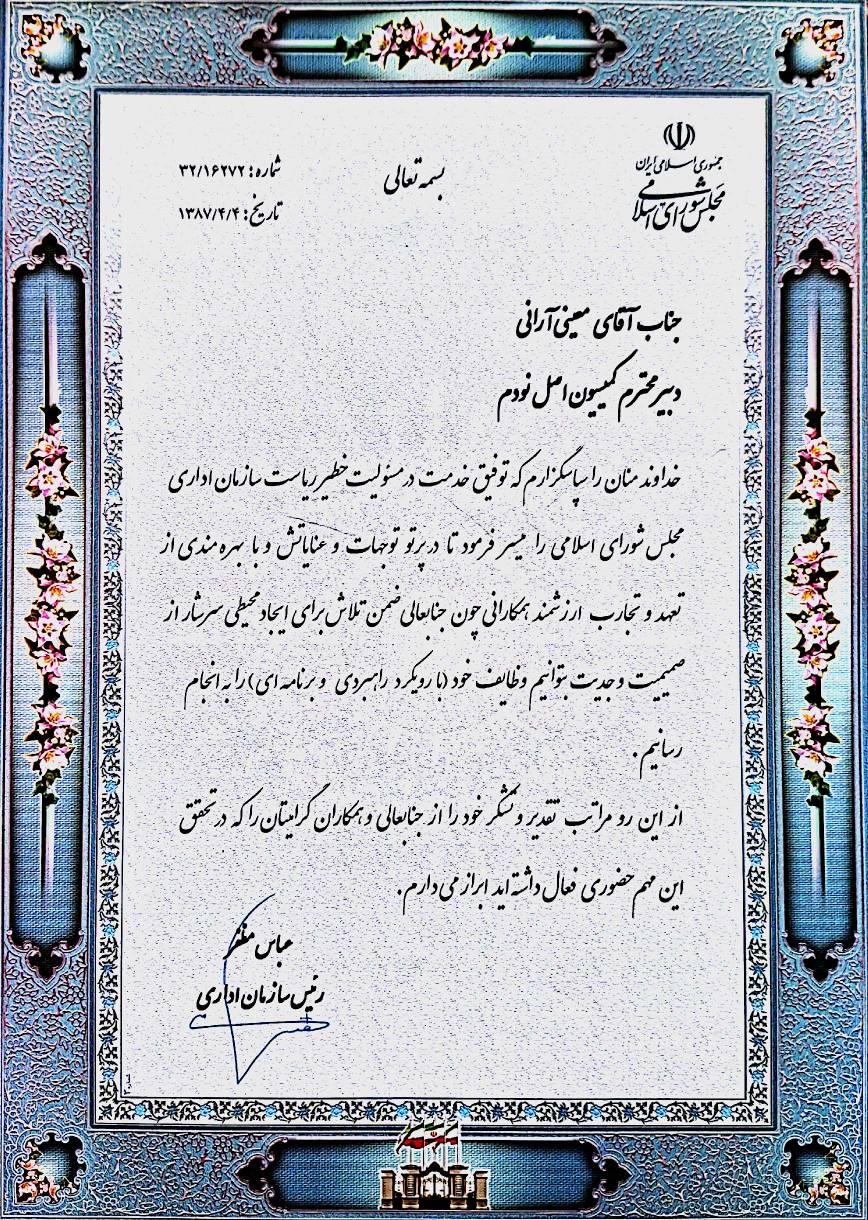 جمهوری اسلامی ایران
مجلس شورای اسلامی
بسمه تعالی
شماره: ۳۲/۱۶۲۷۲
تاریخ: ۱۳۸۷/۴/۴
جناب آقای معینی آرانی
دبیر محترم کمیسیون اصل نودم
خداوند منان را سپاسگزارم که توفیق خدمت در مسئولیت خطیر ریاست سازمان اداری
مجلس شورای اسلامی را میسر فرمود تا در پرتو توجهات و عنایاتش و با بهره مندی از
تعهد و تجارب ارزشمند همکارانی چون جنابعالی ضمن تلاش برای ایجاد محیطی سرشار از
صمیمیت و جدیت بتوانیم وظایف خود (با رویکرد راهبردی و برنامه ای) را به انجام
رسانیم.
از این رو مراتب تقدیر و تشکر خود را از جنابعالی و همکاران گرامیتان را که در تحقق
این مهم حضوری فعال داشته اید ابراز می دارم.
عباس مظفر
رئیس سازمان اداری